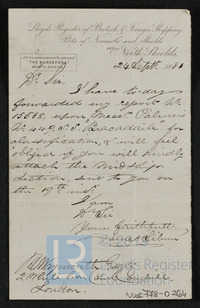 Lloyds Register of British & Foreign Shipping
Port of Newcastle and Shields
North Shields,
THE SURVEYORS
24 Septr 1881
Dr Sir
I have to day
forwarded my report No
15588, upon Messrs Palmers
No 449, S.S. for
classification, & will feel
obliged if you will kindly
attach the Midship
section, sent to you on
the 19th inst.
I am
Dr Sir
Yours faithfully
B Waymouth Esqre
2 White Lion Court, Cornhill
London.